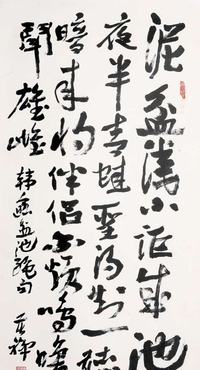 泥盆浅小讵成池
夜半青蛙圣得知一听
暗来将伴侣不烦鸣唤
斗雄雌 韩愈盆池绝句